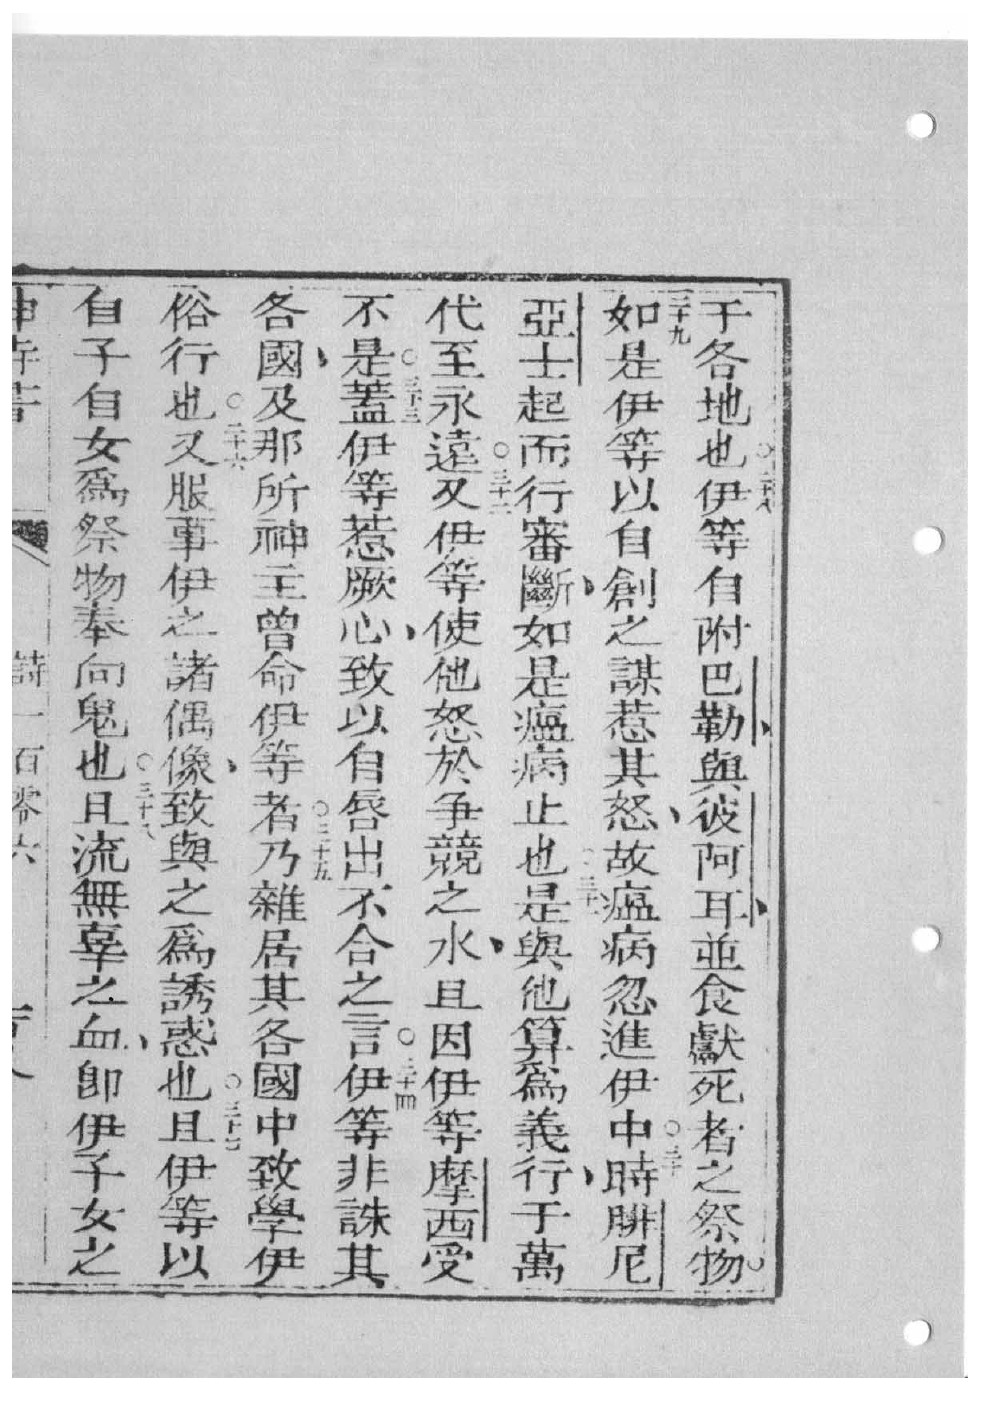 于各地也○二十八伊等自附巴勒與彼阿耳並食獻死者之祭物○
二十九如是伊等以自創之謀惹其怒故瘟病忽進伊中○三十時腓尼
亞士起而行審斷如是瘟病止也○三十一是與他算爲義行于萬
代至永遠○三十二又伊等使他怒於爭競之水且因伊等摩西受
不是○三十三蓋伊等惹厥心致以自唇出不合之言○三十四伊等非誅其
各國及那所神主曾命伊等者○三十五乃雜居其各國中致學伊
俗行也○三十六又服事伊之諸偶像致與之爲誘惑也○三十七且伊等以
自子自女爲祭物奉向鬼也○三十八且流無辜之血卽伊子女之
詩一百零六